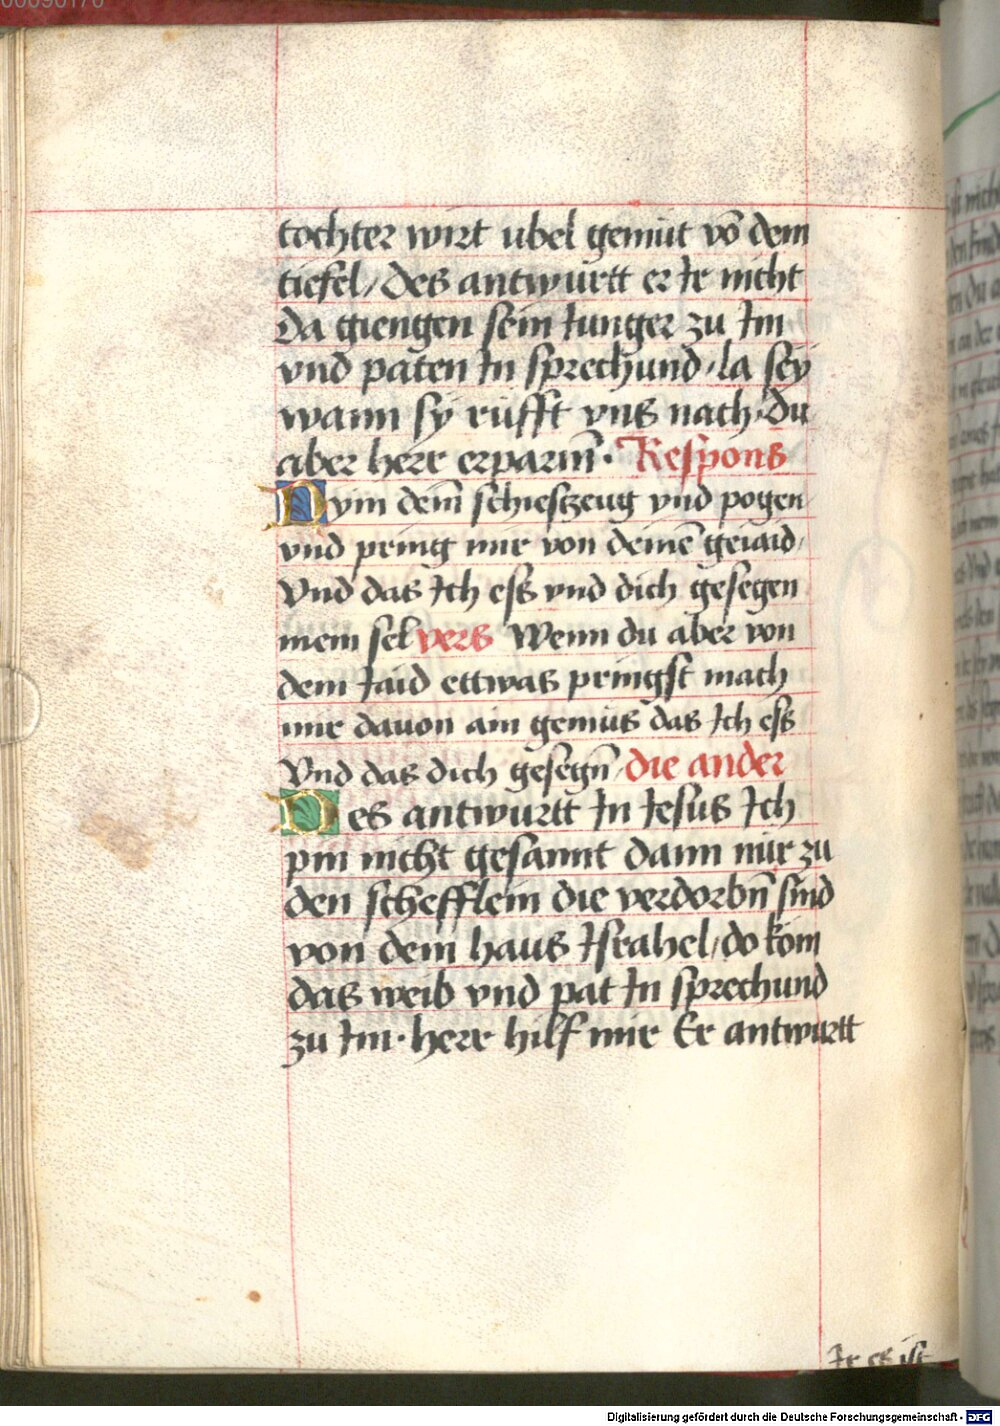 00090170
tochter wirt ubel gemüt võ dem
tiefel / Des antwurtt er Ir nicht
Da giengen sein Iunger zu Im
vnd paten In sprechund / la sey
wann sy rüfft vns nach / Du
aber herr erparm̃ · Respons
Nym dein̄ schieszeug vnd pogen
vnd pring mir von deinē geiaid /
Vnd das Ich ess vnd dich gesegen
mein sel vers Wenn du aber von
dem Iaid ettwas pringst mach
mir dauon ain gemüs das Ich ess
Vnd das dich gesegn̄ / die ander
Des antwurtt In Iesus Ich
pin nicht gesannt dann nür zu
den schefflein die verdorbn̄ sind
von dem haus Israhel / do kom
das weib vnd pat In sprechund
zu Im · herr hilf mir Er antwurtt
Ir es ist
Digitalisierung gefördert durch die Deutsche Forschungsgemeinschaft - DFG